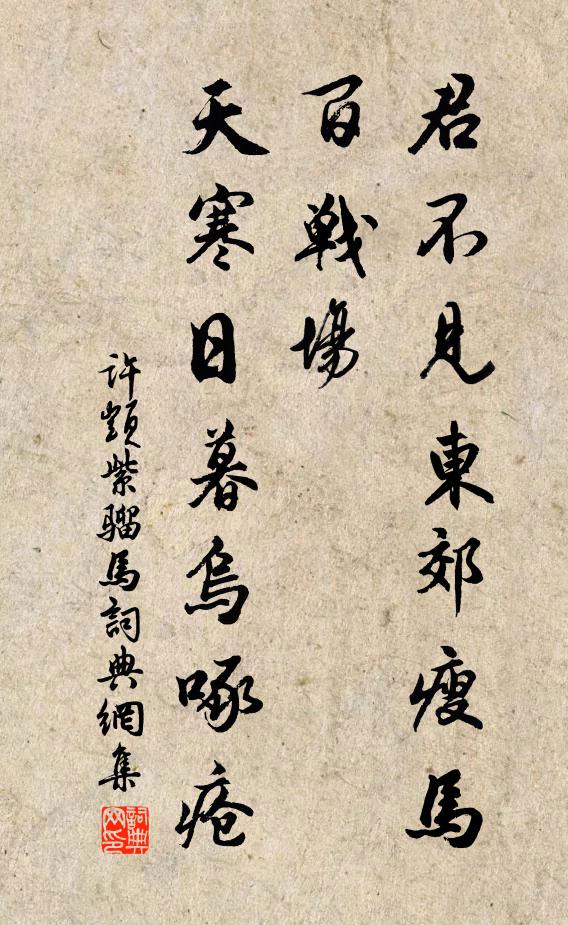 君不見東郊瘦馬
百戰場
天寒日暮烏啄瘡
許顗紫騮馬詞典網集
詞典
网印